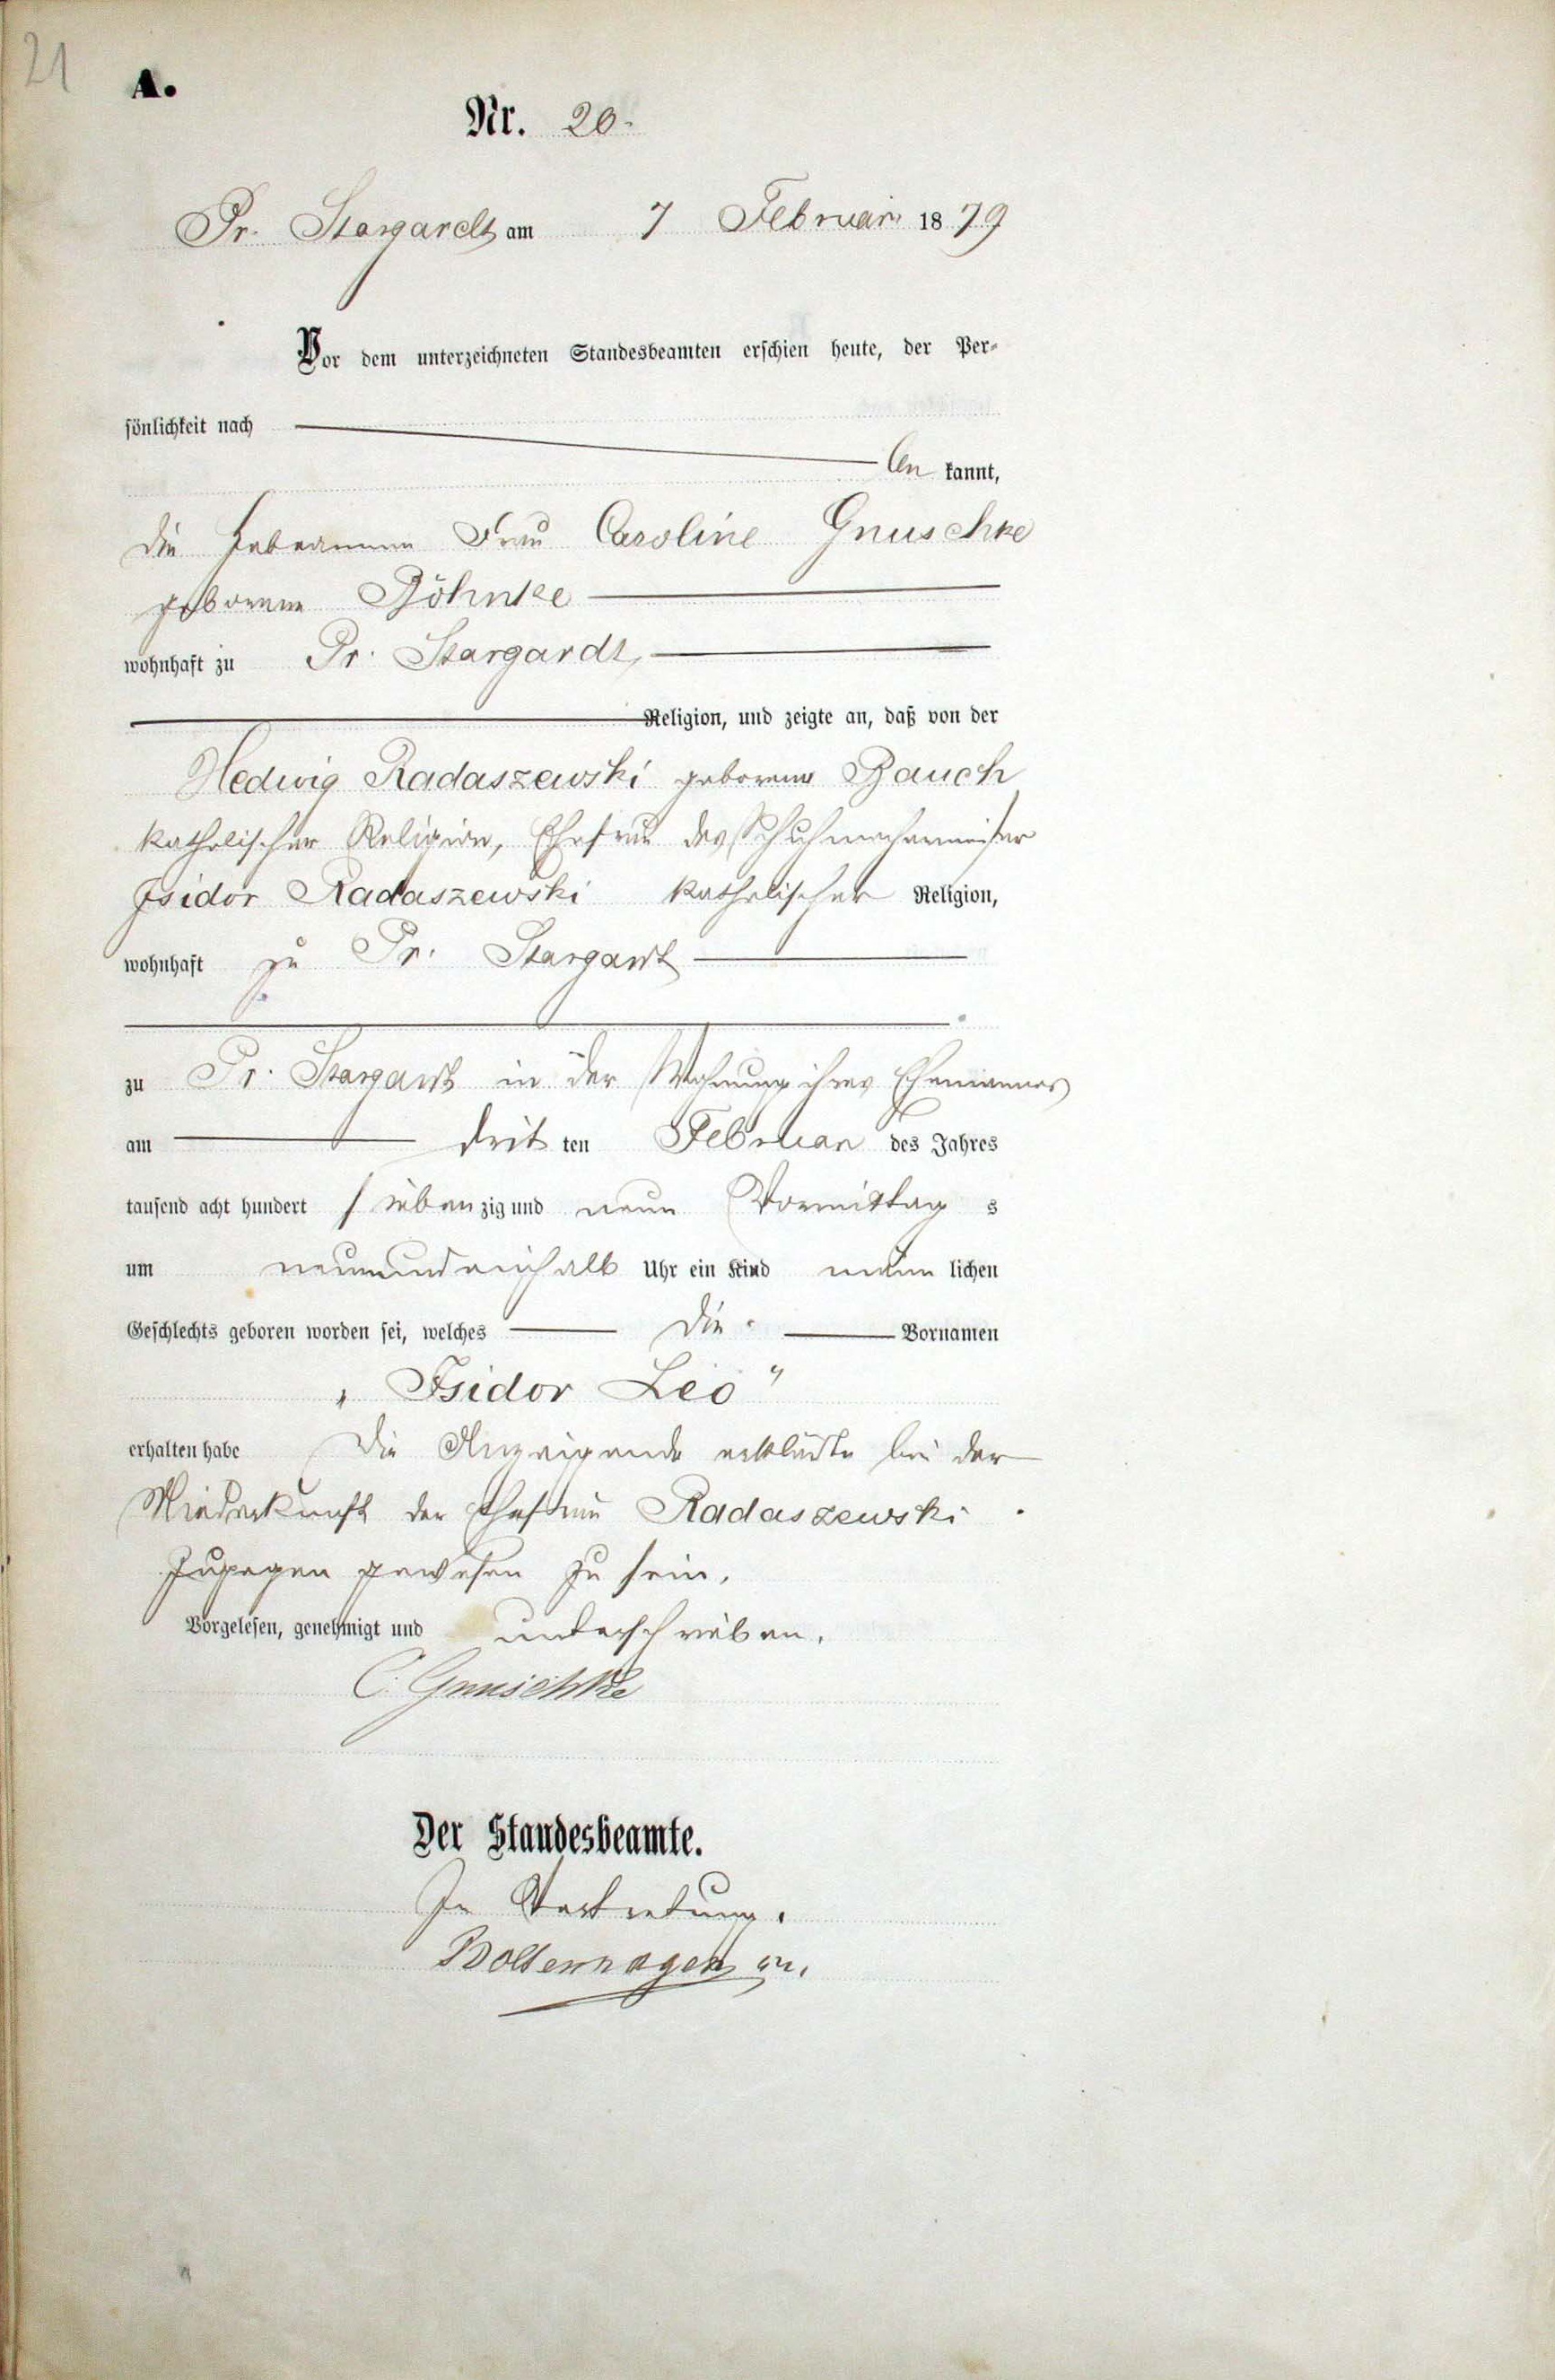 21
A.
Nr. 20.
Pr. Stargardt am 7 Februar 1879
Vor dem unterzeichneten Standesbeamten erschien heute, der Per-
sönlichkeit nach
kannt,
die Hebeamme Frau Caroline Gnuschke
geborene Böhnke
wohnhaft zu Pr. Stargardt,
Religion, und zeigte an, daß von der
Hedwig Radaszewski geborene Bauch
katholischer Religion, Ehefrau des Schuhmachermeister
Isidor Radaszewski katholischer Religion,
wohnhaft zu Pr. Stargardt
zu Pr. Stargardt in der Wohnung ihres Ehemannes
am dritten Februar des Jahres
tausend acht hundert siebenzig und neun Vormittags
um neunundeinhalb Uhr ein Kind männlichen
Geschlechts geboren worden sei, welches die Vornamen
„Isidor Leo"
erhalten habe Die Anzeigende erklärte bei der
Niederkunft der Ehefrau Radaszewski
zugegen gewesen zu sein.
Vorgelesen, genehmigt und unterschrieben.
C. Gnuschke
Der Standesbeamte.
In Vertretung.